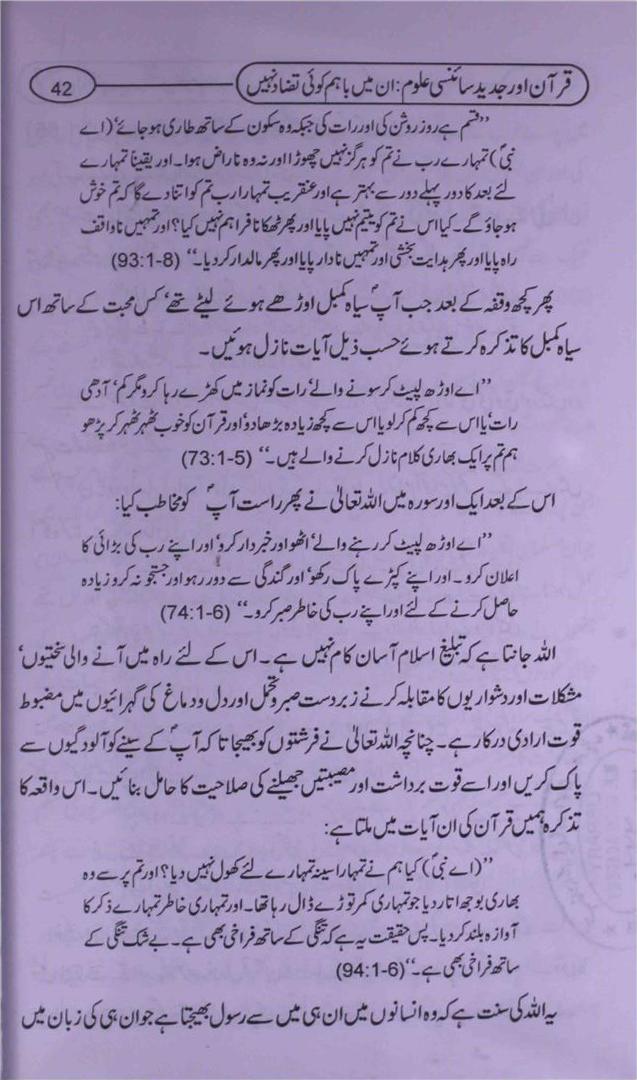 قرآن اور جدید سائنسی علوم: ان میں باہم کوئی تضاد نہیں
42
’’قسم ہے روز روشن کی اور رات کی جبکہ وہ سکون کے ساتھ طاری ہو جائے‘ (اے
نبیؐ) تمہارے رب نے تم کو ہرگز نہیں چھوڑا اور نہ وہ ناراض ہوا۔ اور یقیناً تمہارے
لئے بعد کا دور پہلے دور سے بہتر ہے اور عنقریب تمہارا رب تم کو اتنا دے گا کہ تم خوش
ہو جاؤ گے۔ کیا اس نے تم کو یتیم نہیں پایا اور پھر ٹھکانا فراہم نہیں کیا؟ اور تمہیں ناواقف
راہ پایا اور پھر ہدایت بخشی اور تمہیں نادار پایا اور پھر مالدار کر دیا۔‘‘ (93:1-8)
پھر کچھ وقفہ کے بعد جب آپؐ سیاہ کمبل اوڑھے ہوئے لیٹے تھے‘ کس محبت کے ساتھ اس
سیاہ کمبل کا تذکرہ کرتے ہوئے حسب ذیل آیات نازل ہوئیں۔
’’اے اوڑھ لپیٹ کر سونے والے‘ رات کو نماز میں کھڑے رہا کرو مگر کم‘ آدھی
رات‘ یا اس سے کچھ کم کر لو یا اس سے کچھ زیادہ بڑھا دو‘ اور قرآن کو خوب ٹھہر ٹھہر کر پڑھو
ہم تم پر ایک بھاری کلام نازل کرنے والے ہیں۔‘‘ (73:1-5)
اس کے بعد ایک اور سورہ میں اللہ تعالیٰ نے پھر راست آپؐ کو مخاطب کیا:
’’اے اوڑھ لپیٹ کر رہنے والے‘ اٹھو اور خبردار کرو‘ اور اپنے رب کی بڑائی کا
اعلان کرو۔ اور اپنے کپڑے پاک رکھو‘ اور گندگی سے دور رہو اور جستجو نہ کرو زیادہ
حاصل کرنے کے لئے اور اپنے رب کی خاطر صبر کرو۔‘‘ (74:1-6)
اللہ جانتا ہے کہ تبلیغ اسلام آسان کام نہیں ہے۔ اس کے لئے راہ میں آنے والی سختیوں‘
مشکلات اور دشواریوں کا مقابلہ کرنے زبردست صبر و تحمل اور دل و دماغ کی گہرائیوں میں مضبوط
قوت ارادی درکار ہے۔ چنانچہ اللہ تعالیٰ نے فرشتوں کو بھیجا تا کہ آپؐ کے سینے کو آلودگیوں سے
پاک کریں اور اسے قوت برداشت اور مصیبتیں جھیلنے کی صلاحیت کا حامل بنائیں۔ اس واقعہ کا
تذکرہ ہمیں قرآن کی ان آیات میں ملتا ہے:
’’(اے نبیؐ) کیا ہم نے تمہارا سینہ تمہارے لئے کھول نہیں دیا؟ اور تم پر سے وہ
بھاری بوجھ اتار دیا جو تمہاری کمر توڑے ڈال رہا تھا۔ اور تمہاری خاطر تمہارے ذکر کا
آوازہ بلند کر دیا۔ پس حقیقت یہ ہے کہ تنگی کے ساتھ فراخی بھی ہے۔ بے شک تنگی کے
ساتھ فراخی بھی ہے۔‘‘ (94:1-6)
یہ اللہ کی سنت ہے کہ وہ انسانوں میں ان ہی میں سے رسول بھیجتا ہے جو ان ہی کی زبان میں